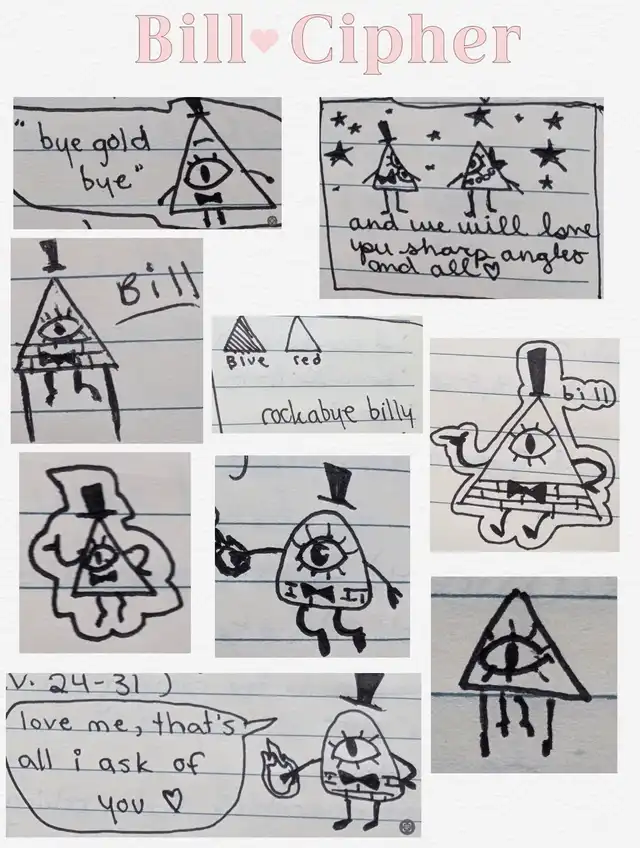 Bill Cipher
"bye gold
bye"
and we will love
you sharp angles
and all ♡
Bill
Blue red
rockabye billy
bill
V. 24-31 )
love me, that's
all i ask of
you ♡